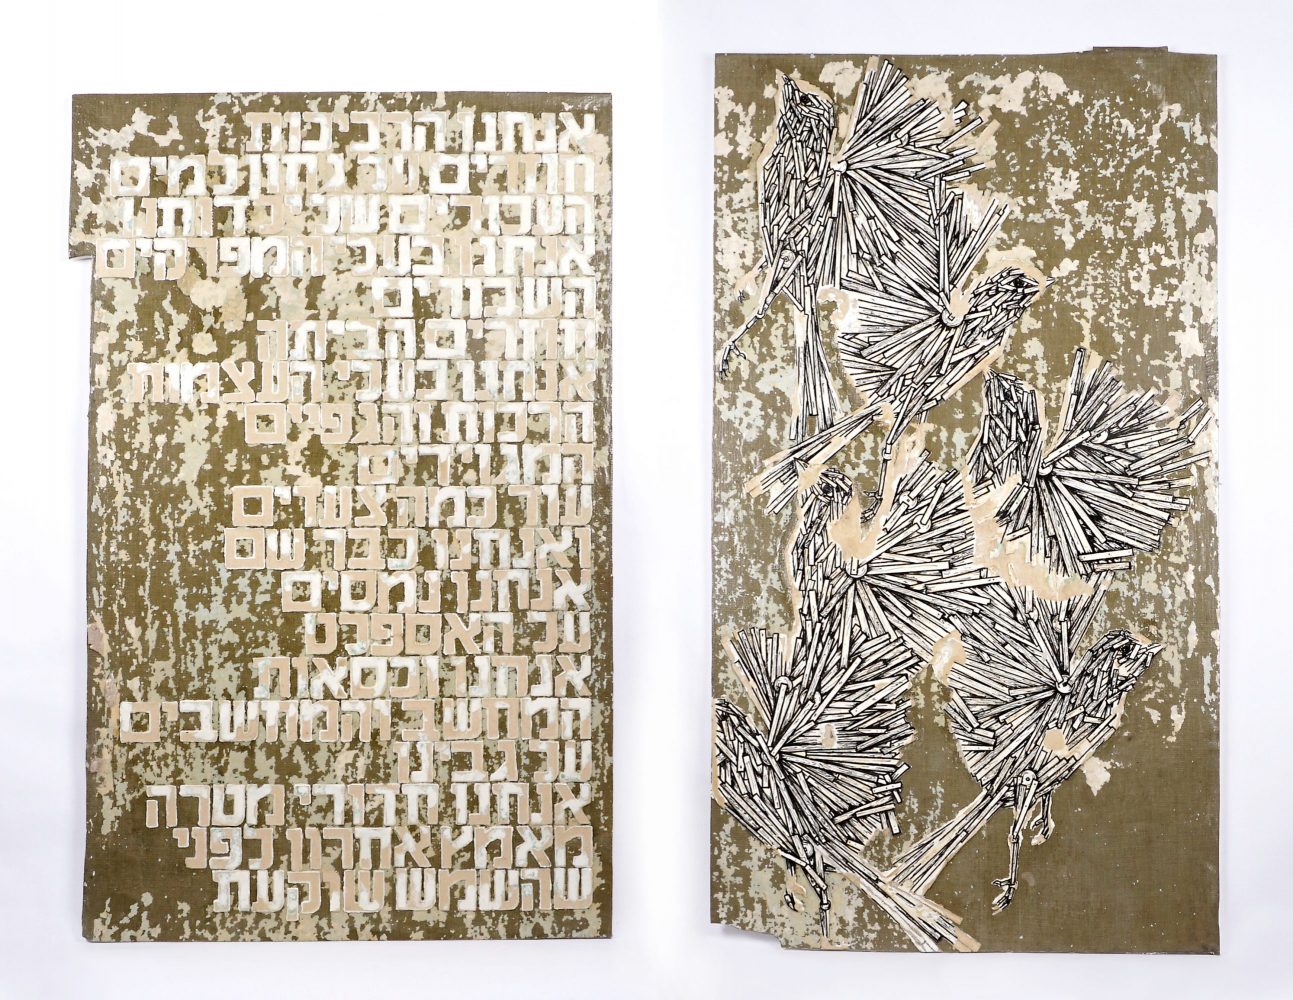 אנחנו הרכיכות
חוזרים על גחון למים
של ילדותנו
אנחנו בעלי המפרקים
השבורים
חוזרים הביתה
אנחנו בעלי העצמות
הרכות והגפיים
עוד כמה צעדים
ואנחנו כבר שם
אנחנו נמסים
על האספלט
אנחנו וכסאות
המחשב
על גבינו
אנחנו חדורי מטרה
מאמץ אחרון לפני
שהשמש שוקעת